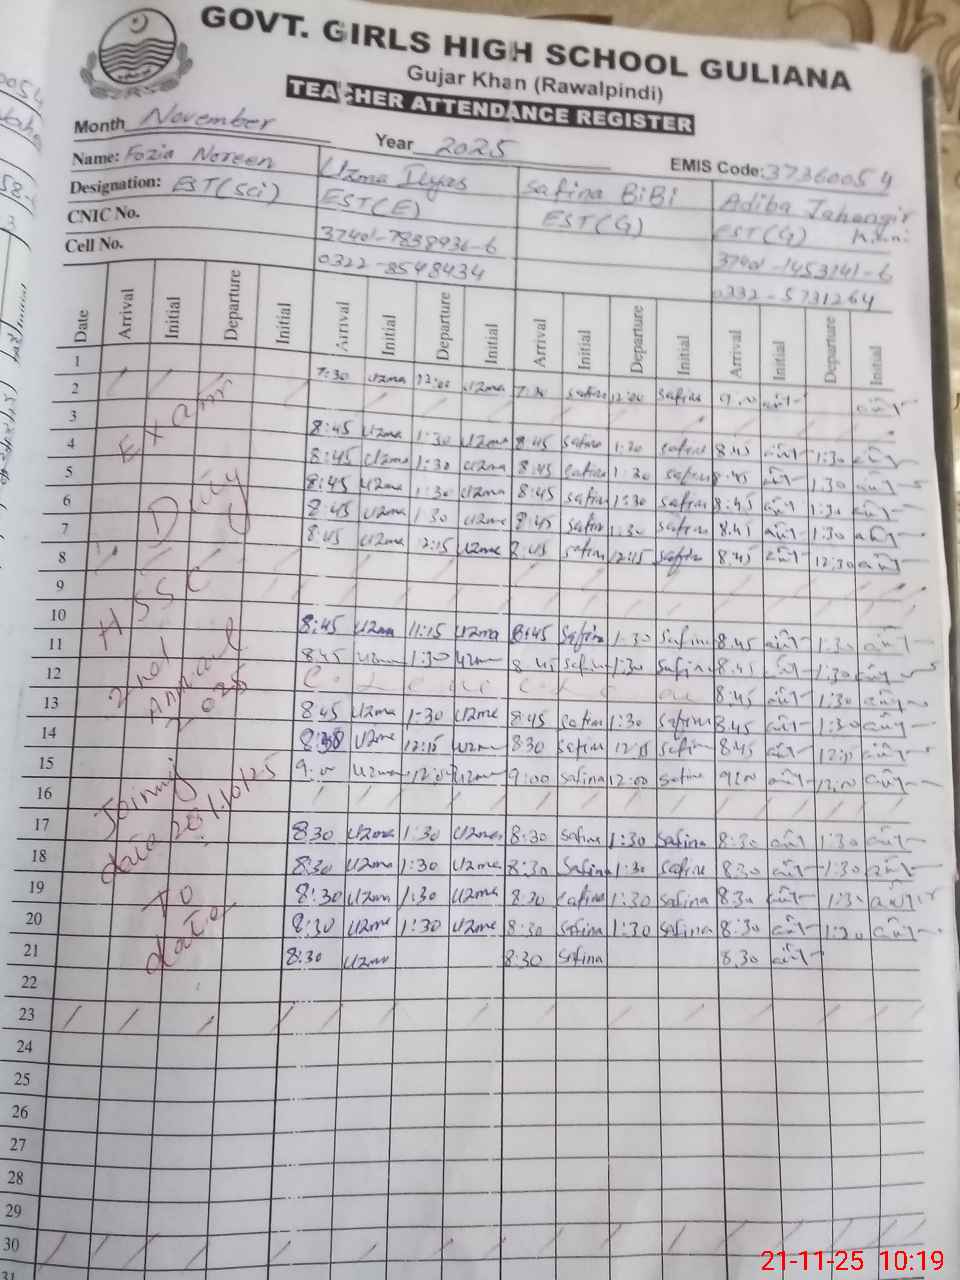 GOVT. GIRLS HIGH SCHOOL GULIANA
Gujar Khan (Rawalpindi)
TEACHER ATTENDANCE REGISTER
Month November Year 2025 EMIS Code: 37360054
Name: Fozia Noreen Uzma Ilyas Safina BiBi Adiba Jahangir
Designation: EST(Sci) EST(E) EST(G) EST(G)
CNIC No. 37401-7838936-6 37401-1453141-6
Cell No. 0322-8548434 0332-5731264
Date Arrival Initial Departure Initial Arrival Initial Departure Initial Arrival Initial Departure Initial Arrival Initial Departure Initial
1 7:30 Uzma 12:00 Uzma 7:30 Safina 12:00 Safina 9:00
2
3 8:45 Uzma 1:30 Uzma 8:45 Safina 1:30 Safina 8:45 1:30
4 Exam 8:45 Uzma 1:30 Uzma 8:45 Safina 1:30 Safina 8:45 1:30
5 8:45 Uzma 1:30 Uzma 8:45 Safina 1:30 Safina 8:45 1:30
6 Duty 8:45 Uzma 1:30 Uzma 8:45 Safina 1:30 Safina 8:45 1:30
7 8:45 Uzma 12:15 Uzma 8:45 Safina 12:15 Safina 8:45 12:30
8
9 HSSC
10 8:45 Uzma 11:15 Uzma 8:45 Safina 1:30 Safina 8:45 1:30
11 2nd 8:45 Uzma 1:30 Uzma 8:45 Safina 1:30 Safina 8:45 1:30
12 Annual C. Leave C. Leave 8:45 1:30
13 2025 8:45 Uzma 1:30 Uzma 8:45 Safina 1:30 Safina 8:45 1:30
14 8:30 Uzma 12:15 Uzma 8:30 Safina 12:15 Safina 8:45
15 Joining 9:00 Uzma 12:00 Uzma 9:00 Safina 12:00 Safina 9:00 12:00
16
17 8:30 Uzma 1:30 Uzma 8:30 Safina 1:30 Safina 8:30 1:30
18 8:30 Uzma 1:30 Uzma 8:30 Safina 1:30 Safina 8:30 1:30
19 To 8:30 Uzma 1:30 Uzma 8:30 Safina 1:30 Safina 8:30 1:30
20 date 8:30 Uzma 1:30 Uzma 8:30 Safina 1:30 Safina 8:30 1:30
21 8:30 Uzma 8:30 Safina 8:30
22
23
24
25
26
27
28
29
30
31
21-11-25 10:19